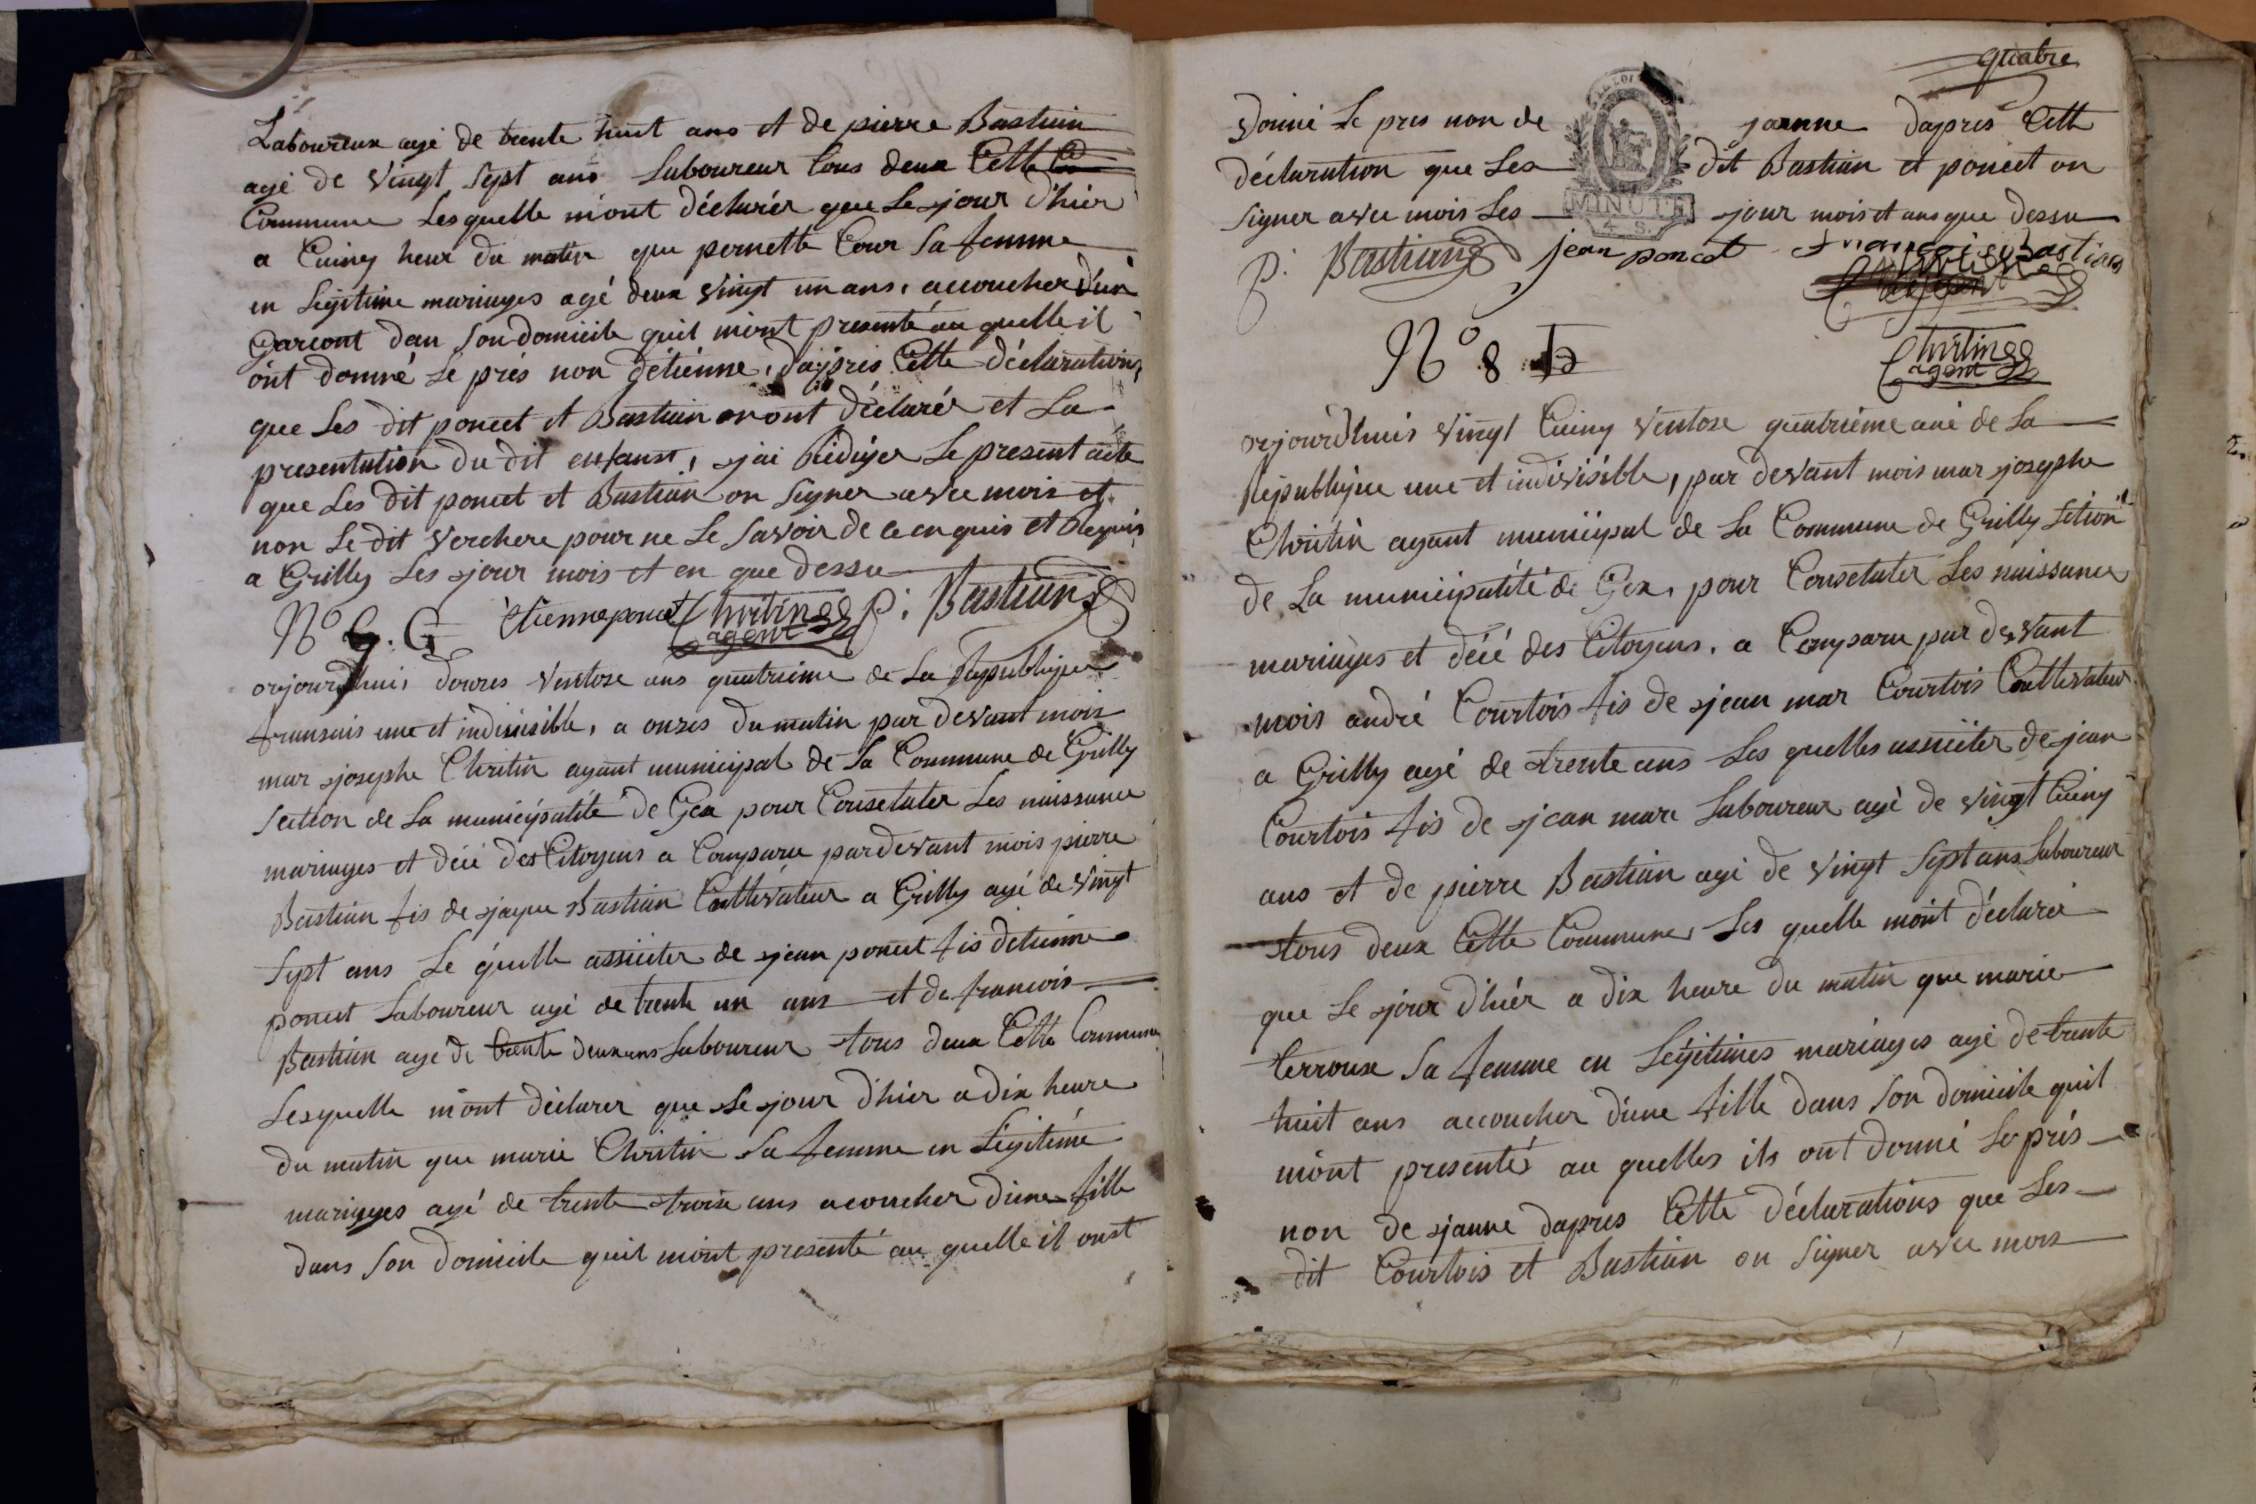 Laboureux agé de trente huit ans et de pierre Bastian
agé de vingt sept ans Laboureur tous deux Cette
Commune Lesquelle mont déclarér que Le jour d'hier
a Cuinq heur du matin que pernette Cour Sa femme
en Légitime mariages agé deux vingt un ans, accoucher d'un
Garcont dan Son domicile quil mont presenté au quelle il
ont domné Le prés non détiénne, dapprés Cette déclaration,
que Les dit poncet et Bastian mont déclarér et La
presentation du dit enfanst, jai Rédiger Le present acte
que Les dit poncet et Bastian on Signer avec mois et
non Le dit verchere pour ne Le Savoir de ce enquis et Requis
a Grilly Les jour mois et en que dessu
N° G. Etienne poncet Chritin agent P: Bastian
oujourdhui douzes ventose ans quatriéme de La Republique
fransais une et indivisible, a onzes du matin par devant mois
mar josephe Chritin agant municipal de La Commune de Grilly
Section de La municipalité de Gex pour Consetater Les naissance
mariages et décé des Citoyens a Comparu pardevant mois pierre
Bastian fis de jaque Bastian Cultivateur a Grilly agé de vingt
Sept ans Le quelle assisiter de jean poncet fis détienne
poncet Laboureur agé de trente un ans et de francois
Bastian agé de trente deux ans Laboureur tous deux Cette Commune
Lesquelle mont déclarer que Le jour d'hier a dix heure
du matin que marie Chritin Sa femme en Légitimé
mariages agé de trente troix ans acoucher d'une fille
dans Son domicile quil mont presenté au quelle il onst
quatre
donné Le pres non de jeanne dapres Cette
déclaration que Les dit Bastian et poncet on
Signer avec mois Les jour mois et ans que dessu
MINUTE
P: Bastian jean poncet francois Bastian
N° 8 Chritin agent
oujourdhuis vingt Cuinq ventose quatriéme ané de La
Republique une et indivisible, par devant mois mar josephe
Chritin agant municipal de La Commune de Grilly Sction
de La municipalité de Gex, pour Consetater Les naissance
mariages et décé des Citoyens, a Comparu par devant
mois andré Courtois fis de jean mar Courtois Cultivateur
a Grilly agé de trente ans Les quelles assisiter de jean
Courtois fis de jean marc Laboureur agé de vingt Cuinq
ans et de pierre Bastian agé de vingt Sept ans Laboureur
tous deux Cette Commune, Les quelle mont déclaré
que Le jour d'hiér a dix heure du matin que marie
terroux Sa femme en Légitimes mariages agé de trente
huit ans accoucher d'une fille dans Son domicile quil
mont presentés au quelles ils ont donné Le prés
non de jeanne dapres Cette déclarations que Les
dit Courtois et Bastian on Signer avec mois